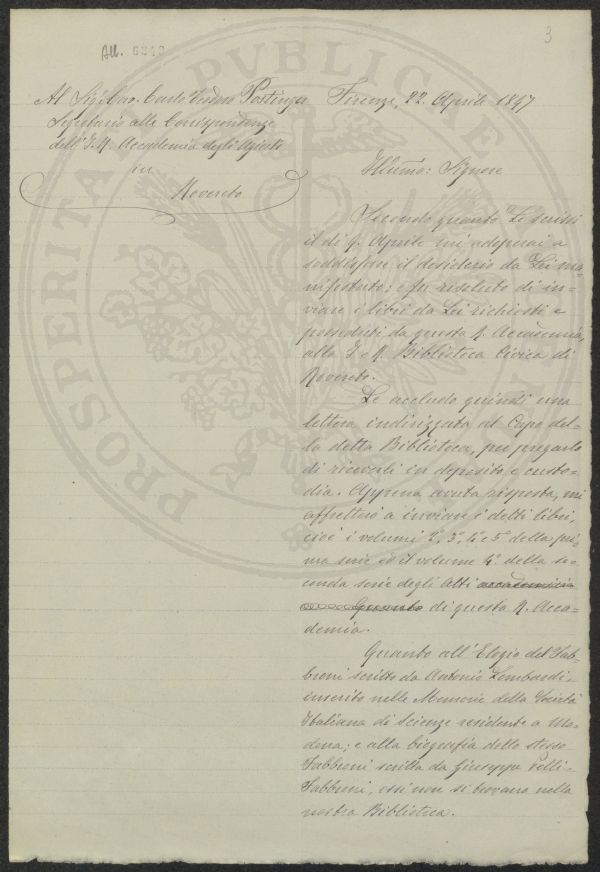 3
All. 6343
Al Sig. Cav. Carlo Teodoro Postinger
Segretario alle Corrispondenze
dell' I. R. Accademia degli Agiati
in
Rovereto
Firenze, 22. Aprile 1897
Illumo: Signore
Secondo quanto Le scrissi
il dì 9. Aprile mi adoperai a
soddisfare il desiderio da Lei ma
nifestato; e fu risoluto di in-
viare i libri da Lei richiesti e
posseduti da questa R. Accademia,
alla I. e R. Biblioteca Civica di
Rovereto.
Le accludo quindi una
lettera indirizzata al Capo del-
la detta Biblioteca, per pregarlo
di riceverli in deposito e custo-
dia. Appena avuta risposta, mi
affretterò a inviare i detti libri,
cioè i volumi 2°, 3°, 4° e 5° della pri-
ma serie ed il volume 4° della se-
conda serie degli Atti accademici
Quanto di questa R. Acca-
demia.
Quanto all' Elogio del Fab-
broni scritto da Antonio Lombardi,
inserito nelle Memorie della Società
Italiana di Scienze residente a Mo-
dena; e alla biografia dello stesso
Fabbroni scritta da Giuseppe Pelli-
Fabbroni, essi non si trovano nella
nostra Biblioteca.
PROSPERITATI PVBLICAE